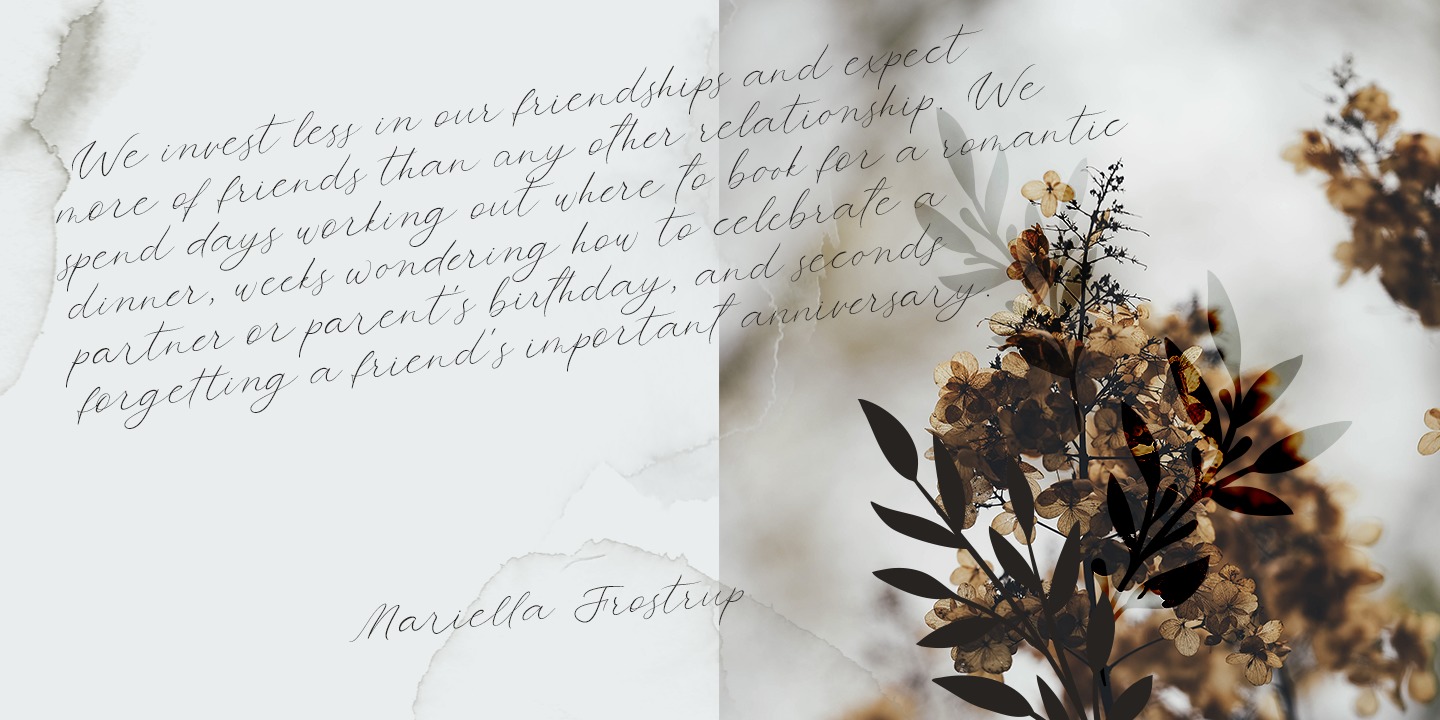 We invest less in our friendships and expect
more of friends than any other relationship. We
spend days working out where to book for a romantic
dinner, weeks wondering how to celebrate a
partner or parent's birthday, and seconds
forgetting a friend's important anniversary.
Mariella Frostrup